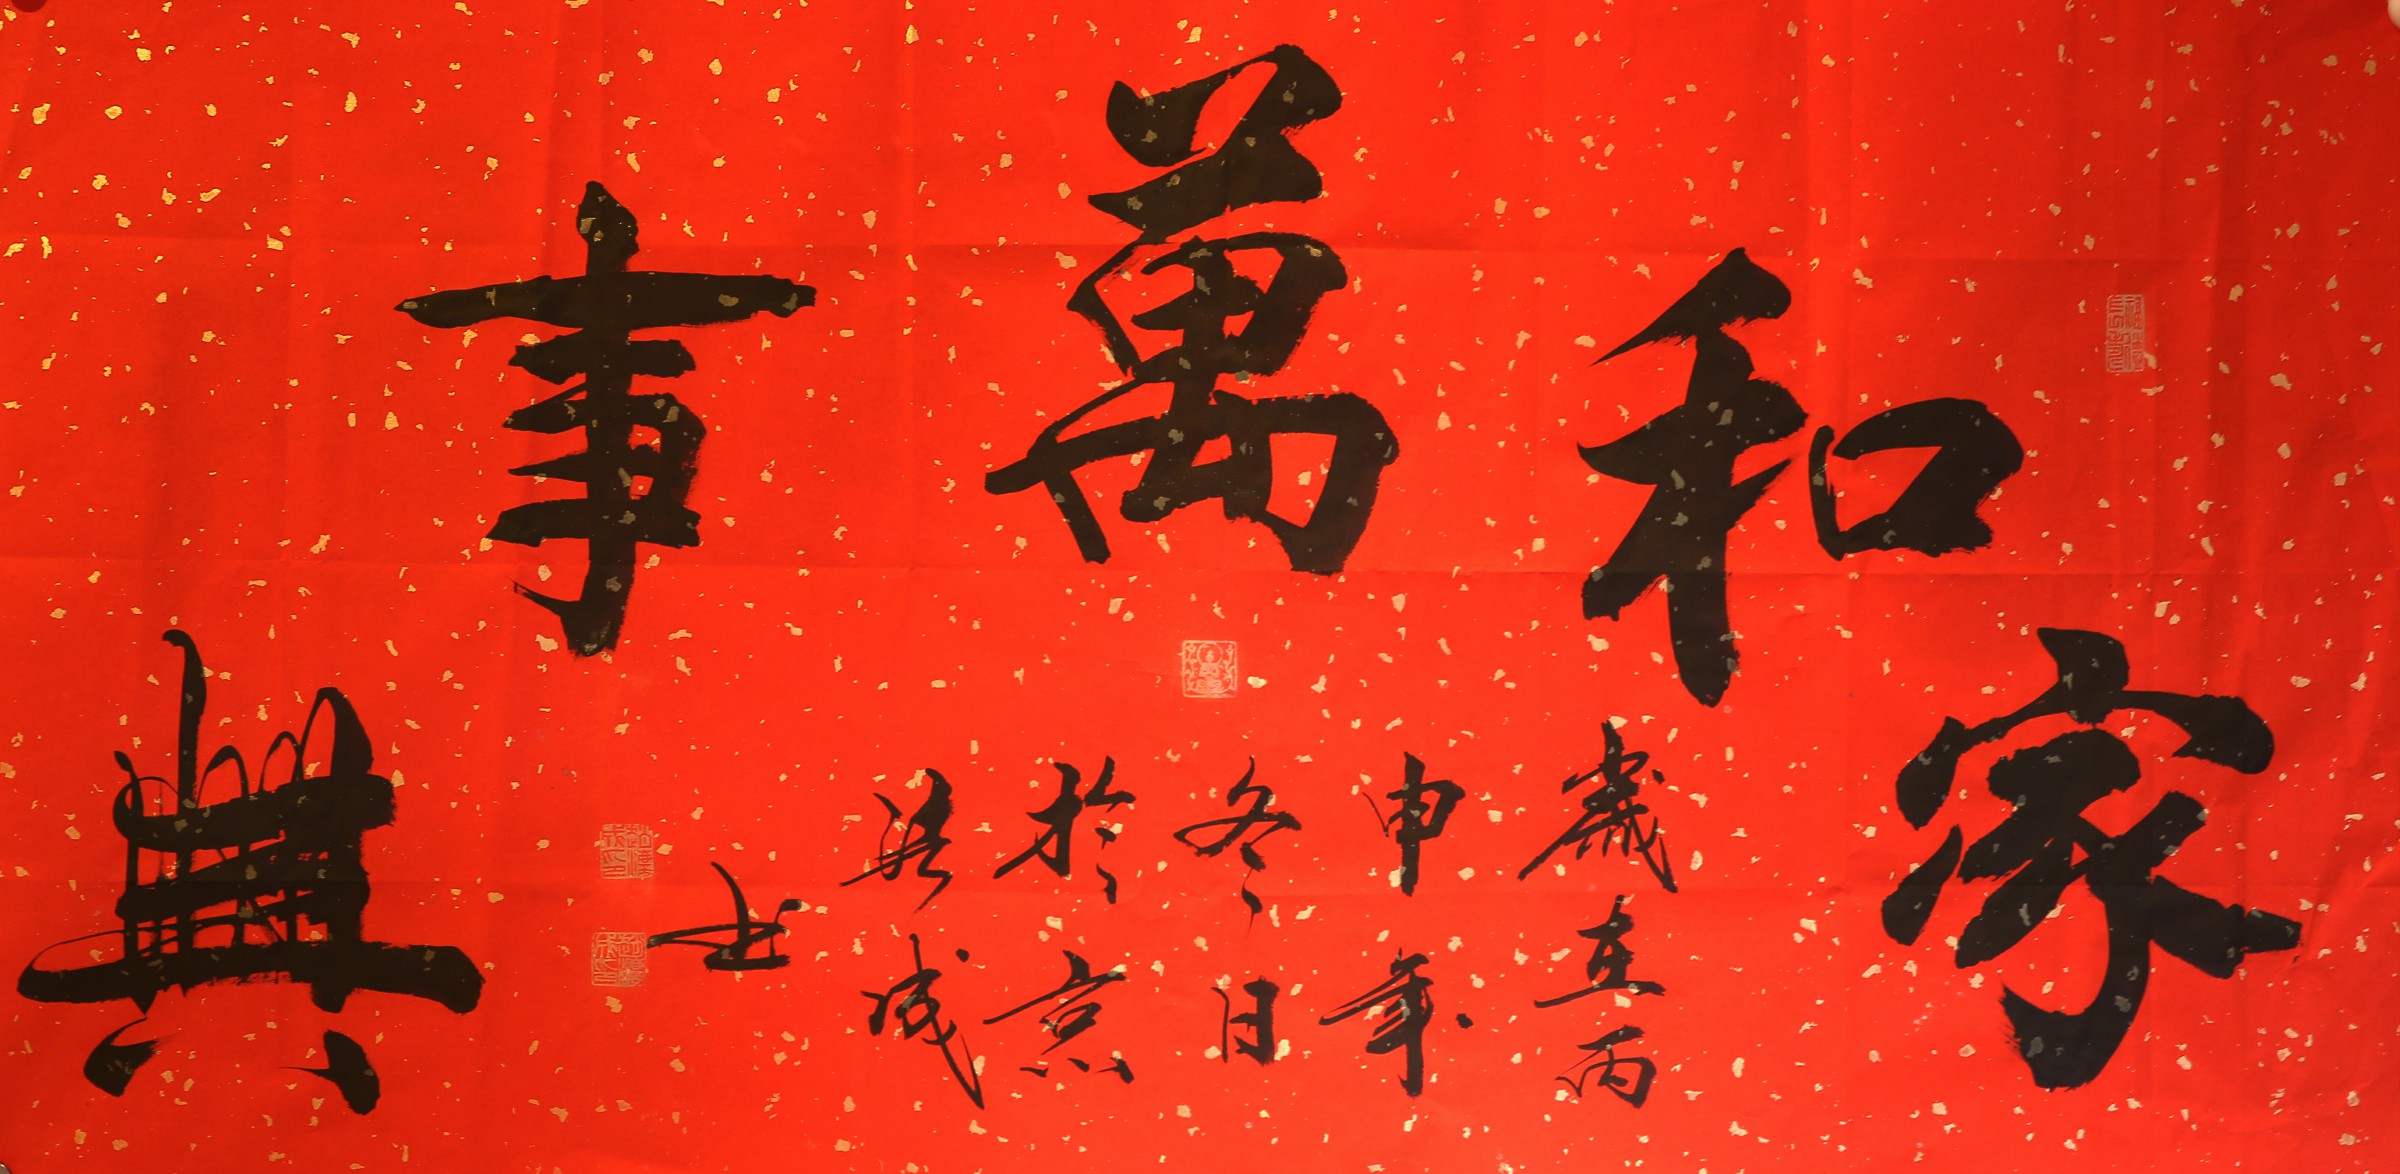 家和萬事興
歲在丙
申年
冬日
於京
成
书